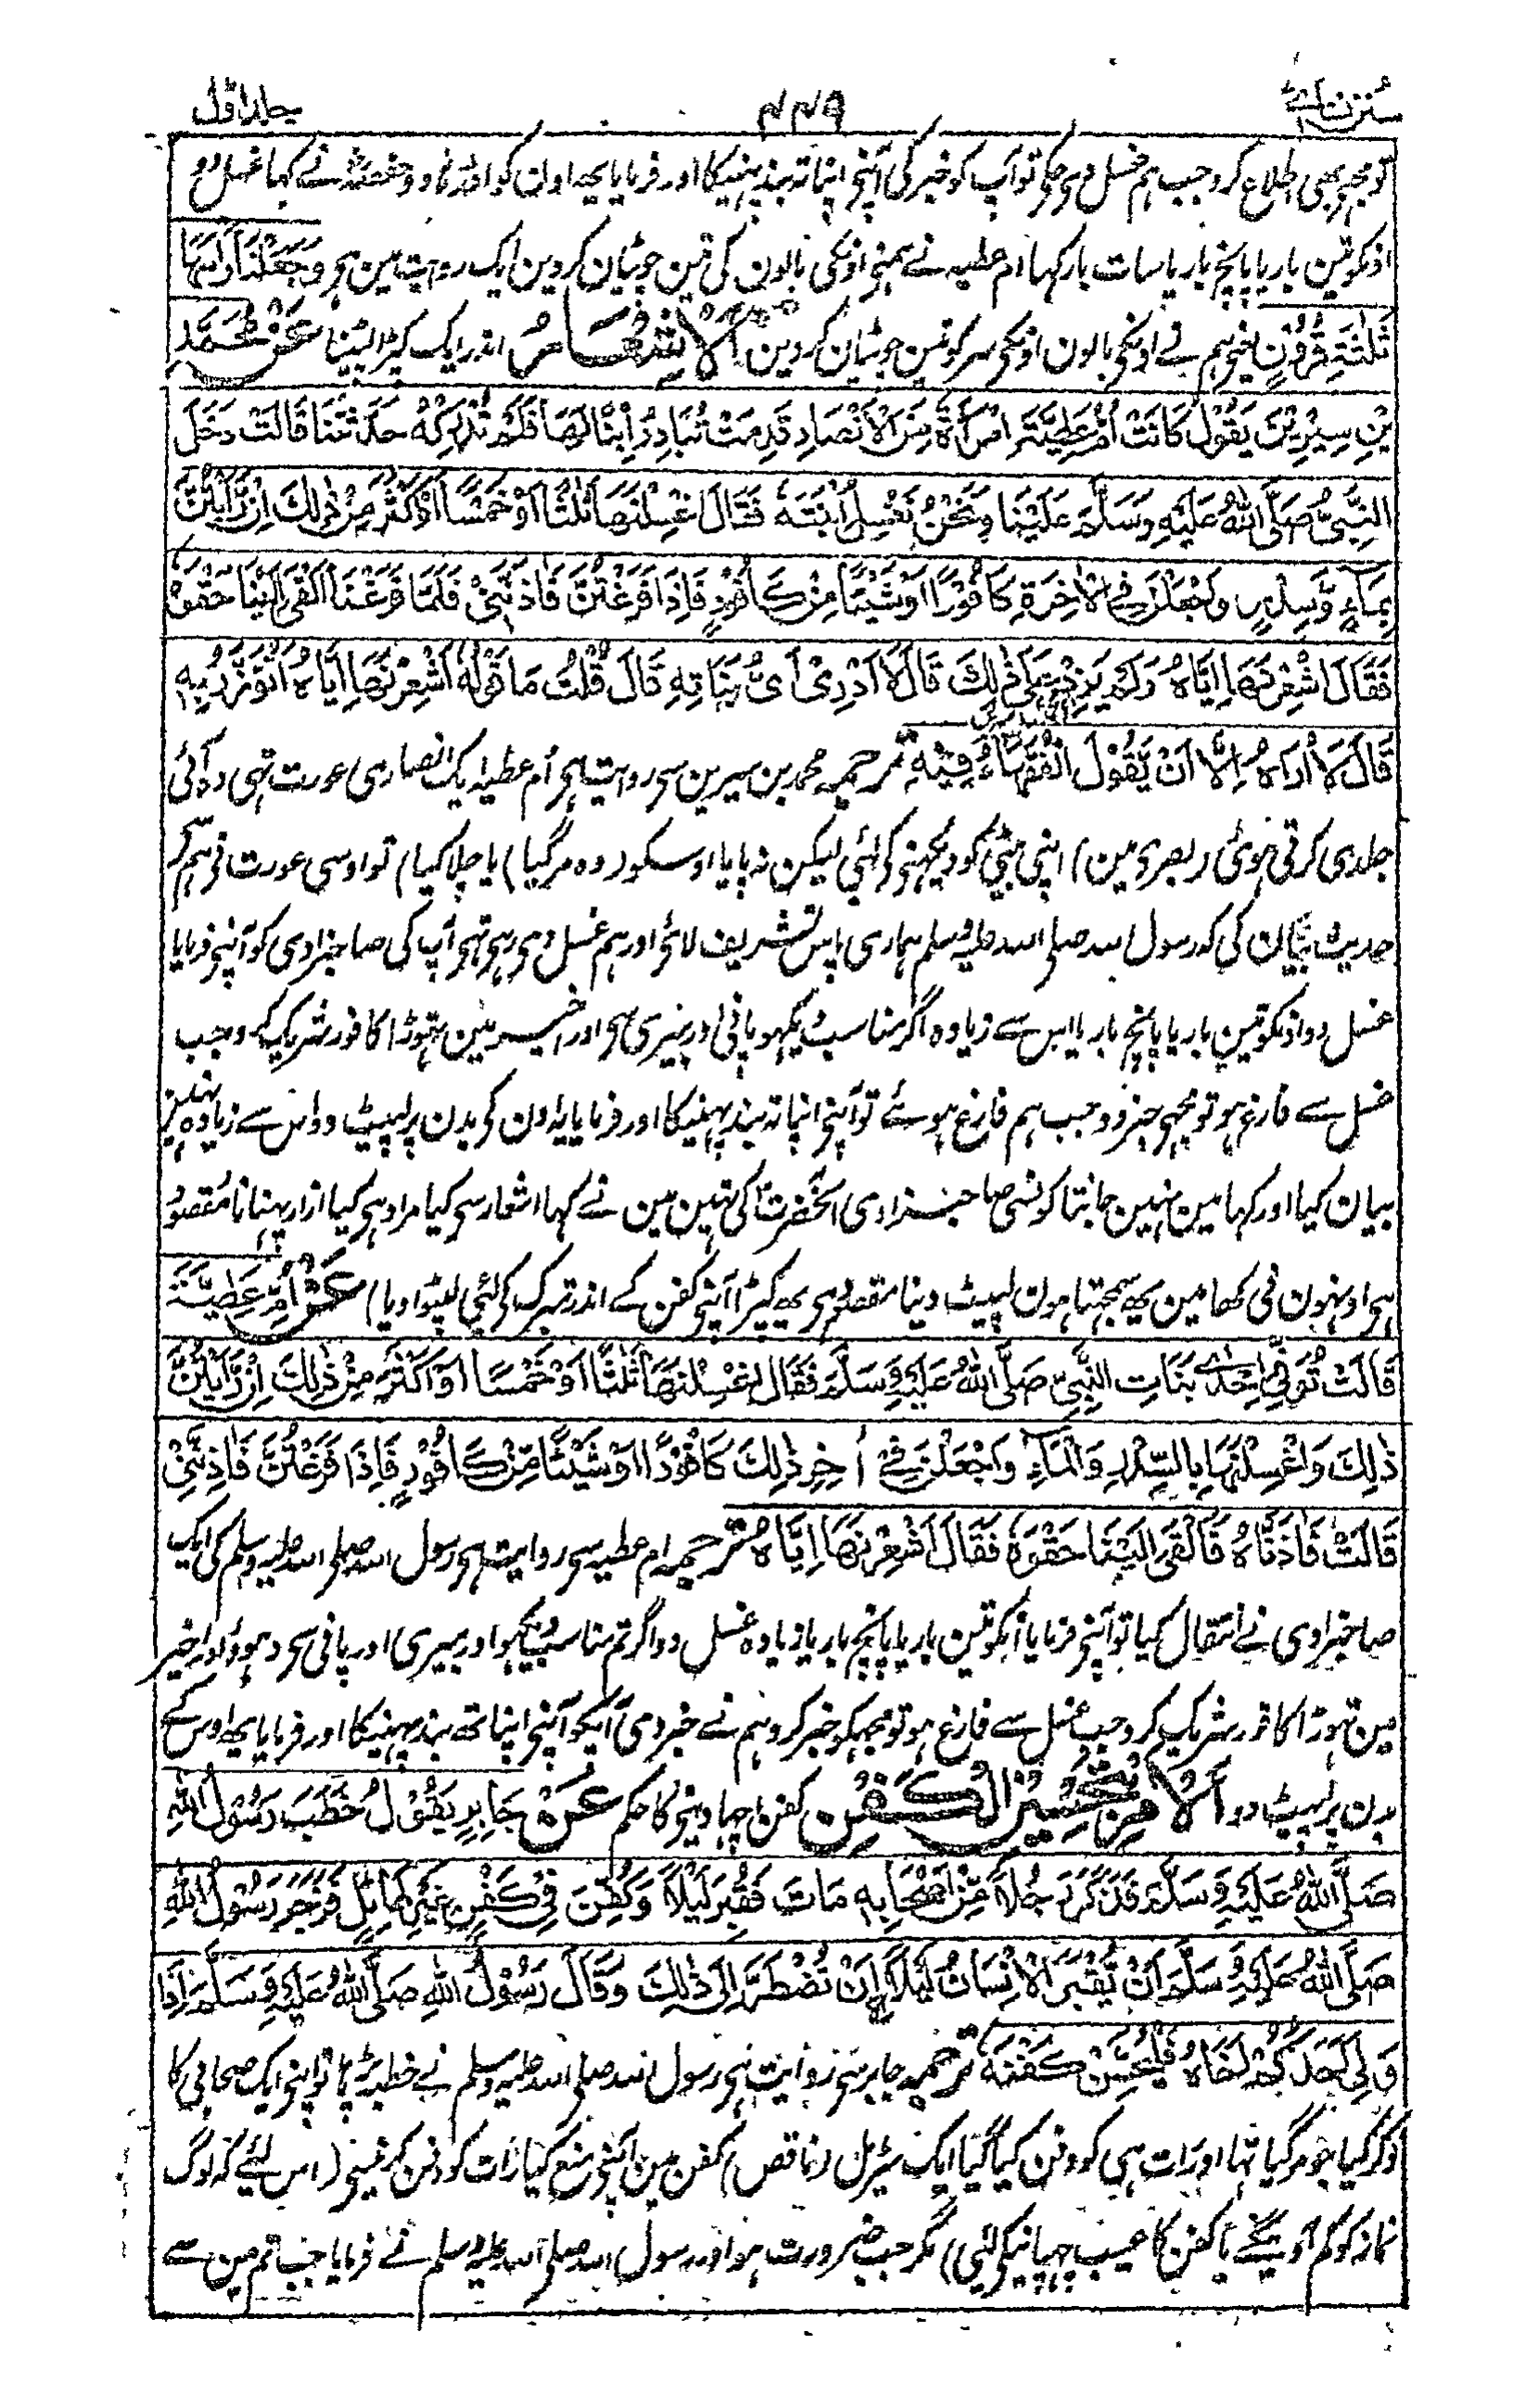 سنن نسائی ۶۶۹ جلد اول
تو مجھ بھی اطلاع کرو جب ہم غسل دی چکی تو آپ کو خبر کی آپنی اپنا تہ بند پہینکا اور فرمایا یہ اون کو اڑہا دو حفصہ نے کہا غسل دو
اونکو تین بار یا پانچ بار یا سات بار کہا ام عطیہ نے ہمنی اونکی بالون کی تین چوٹیان کر دین ایک روایت مین ہی وَجَعَلْنَا رَأْسَهَا
ثَلٰثَةَ قُرُوْنٍ یعنی ہم نے اونکی بالون اونکی سر کو تین چوٹیان کر دین اَلْاِشْعَارُ اندر ایک کپڑا لپیٹنا عَنْ مُحَمَّدِ
بْنِ سِيْرِيْنَ يَقُوْلُ كَانَتْ اُمُّ عَطِيَّةَ امْرَأَةً مِنَ الْاَنْصَارِ قَدِمَتْ تُبَادِرُ اِبْنًا لَهَا فَلَمْ تُدْرِكْهُ حَدَّثَتْنَا قَالَتْ دَخَلَ
النَّبِيُّ صَلَّى اللهُ عَلَيْهِ وَسَلَّمَ عَلَيْنَا وَنَحْنُ نَغْسِلُ اُبْنَتَهُ فَقَالَ اغْسِلْنَهَا ثَلٰثًا اَوْ خَمْسًا اَوْ اَكْثَرَ مِنْ ذٰلِكَ اِنْ رَاَيْتُنَّ
بِمَاءٍ وَّسِدْرٍ وَاجْعَلْنَ فِي الْاٰخِرَةِ كَافُوْرًا اَوْ شَيْئًا مِنْ كَافُوْرٍ فَاِذَا فَرَغْتُنَّ فَاٰذِنَّنِيْ فَلَمَّا فَرَغْنَا اَلْقٰى اِلَيْنَا حَقْوَهُ
فَقَالَ اَشْعِرْنَهَا اِيَّاهُ وَلَمْ يَزِدْ عَلٰى ذٰلِكَ قَالَ لَا اَدْرِىْ اَىُّ بَنَاتِهِ قَالَ قُلْتُ مَا قَوْلُهُ اَشْعِرْنَهَا اِيَّاهُ اَتُؤَزَّرُ بِهِ
قَالَ لَا اُرَاهُ اِلَّا اَنْ يَقُوْلَ الْفُفْنَهَا فِيْهِ ترجمہ محمد بن سیرین سی روایت ہی ام عطیہ ایک انصاری عورت تہی وہ آئی
جلدی کرتی ہوئی (بصری مین) اپنی بیٹی کو دیکہنی کی لئی لیکن نہ پایا اوسکو (وہ مر گیا) یا چلا گیا) تو اوسی عورت نی ہم سی
حدیث بیان کی کہ رسول اللہ صلی اللہ علیہ وسلم ہماری پاس تشریف لائی اور ہم غسل دی رہی تہی آپ کی صاحبزادی کو آپنی فرمایا
غسل دو اونکو تین بار یا پانچ بار یا اس سے زیادہ اگر مناسب دیکہو پانی اور بیری سی اور اخیر مین تہوڑا کافور شریک کرو جب
غسل سے فارغ ہو تو مجہی خبر دو جب ہم فارغ ہوئے تو آپنی اپنا تہ بند پہینکا اور فرمایا یہ اون کی بدن پر لپیٹ دو اس سے زیادہ نہین
بیان کیا اور کہا مین نہین جانتا کونسی صاحبزادی آنحضرت کی تہین مین نے کہا اشعار سی کیا مراد ہی کیا ازار پہنانا مقصود
ہی اونہون نی کہا مین یہ سمجہتا ہون لپیٹ دینا مقصود ہی یہ کپڑا آپنی کفن کے اندر تبرک کی لئی لپٹوا دیا) عَنْ اُمِّ عَطِيَّةَ
قَالَتْ تُوُفِّيَ اِحْدٰى بَنَاتِ النَّبِيِّ صَلَّى اللهُ عَلَيْهِ وَسَلَّمَ فَقَالَ اغْسِلْنَهَا ثَلٰثًا اَوْ خَمْسًا اَوْ اَكْثَرَ مِنْ ذٰلِكَ اِنْ رَاَيْتُنَّ
ذٰلِكَ وَاغْسِلْنَهَا بِالسِّدْرِ وَالْمَاءِ وَاجْعَلْنَ فِيْ اٰخِرِ ذٰلِكَ كَافُوْرًا اَوْ شَيْئًا مِنْ كَافُوْرٍ فَاِذَا فَرَغْتُنَّ فَاٰذِنَّنِيْ
قَالَتْ فَاٰذَنَّاهُ فَاَلْقٰى اِلَيْنَا حَقْوَهُ فَقَالَ اَشْعِرْنَهَا اِيَّاهُ ترجمہ ام عطیہ سی روایت ہی رسول اللہ صلی اللہ علیہ وسلم کی ایک
صاحبزادی نے انتقال کیا تو آپنی فرمایا انکو تین بار یا پانچ بار یا زیادہ غسل دو اگر تم مناسب دیکہو اور بیری اور پانی سی دہوؤ اور اخیر
مین تہوڑا کافور شریک کرو جب غسل سے فارغ ہو تو مجہکو خبر کرو ہم نے خبر دی آپکو آپنی اپنا تہ بند پہینکا اور فرمایا یہ اوس کے
بدن پر لپیٹ دو اَلْاَمْرُ بِتَحْسِيْنِ الْكَفَنِ کفن اچہا دینی کا حکم عَنْ جَابِرٍ يَقُوْلُ خَطَبَ رَسُوْلُ اللهِ
صَلَّى اللهُ عَلَيْهِ وَسَلَّمَ فَذَكَرَ رَجُلًا مِّنْ اَصْحَابِهِ مَاتَ فَقُبِرَ لَيْلًا وَكُفِّنَ فِيْ كَفَنٍ غَيْرِ طَائِلٍ فَزَجَرَ رَسُوْلُ اللهِ
صَلَّى اللهُ عَلَيْهِ وَسَلَّمَ اَنْ يُّقْبَرَ الْاِنْسَانُ لَيْلًا اِلَّا اَنْ تُضْطَرَّ اِلٰى ذٰلِكَ وَقَالَ رَسُوْلُ اللهِ صَلَّى اللهُ عَلَيْهِ وَسَلَّمَ اِذَا
وَلِيَ اَحَدُكُمْ اَخَاهُ فَلْيُحَسِّنْ كَفَنَهُ ترجمہ جابر سی روایت ہی رسول اللہ صلی اللہ علیہ وسلم نے خطبہ پڑہا تو اپنی ایک صحابی کا
ذکر کیا جو مر گیا تہا اور رات ہی کو دفن کیا گیا ایک (ناقص) کفن مین آپنی منع کیا رات کو دفن کرنیسی (اس لئے کہ لوگ
نماز کو کم آوینگے یا کفن کا عیب چہپانیکی لئی) مگر جب ضرورت ہو اور رسول اللہ صلی اللہ علیہ وسلم نے فرمایا جب تم مین سے